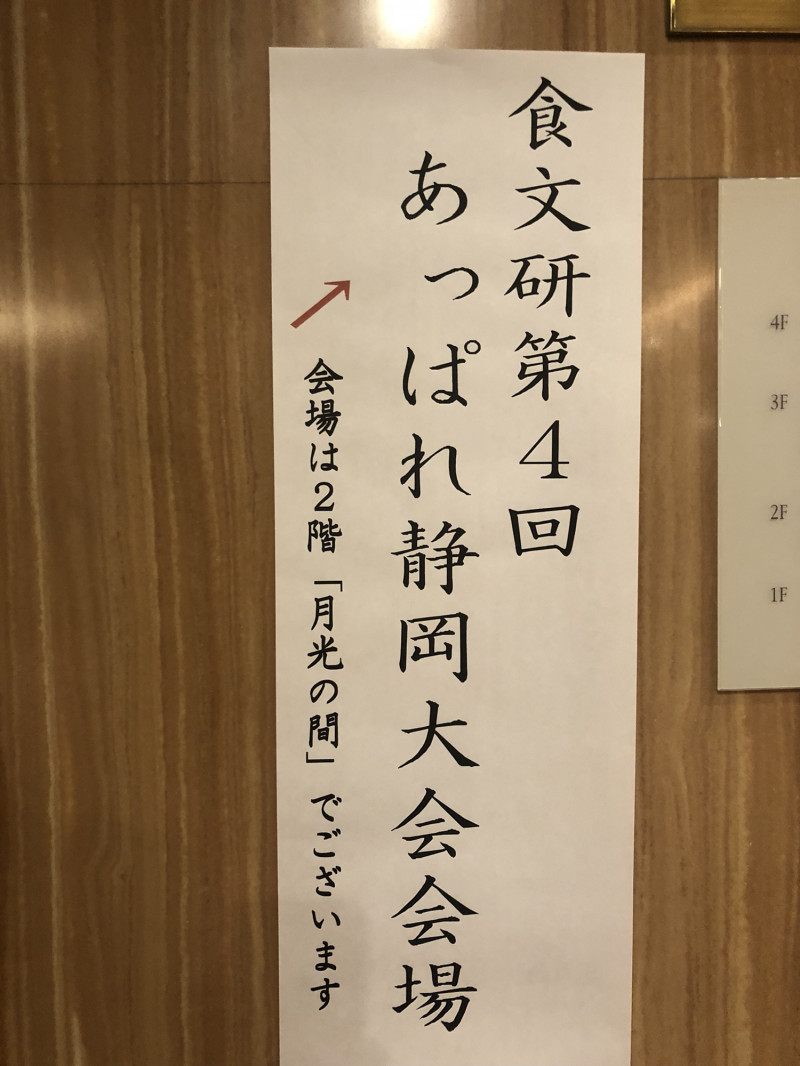 食文研第4回
あっぱれ静岡大会会場
会場は2階「月光の間」でございます
4F
3F
2F
1F